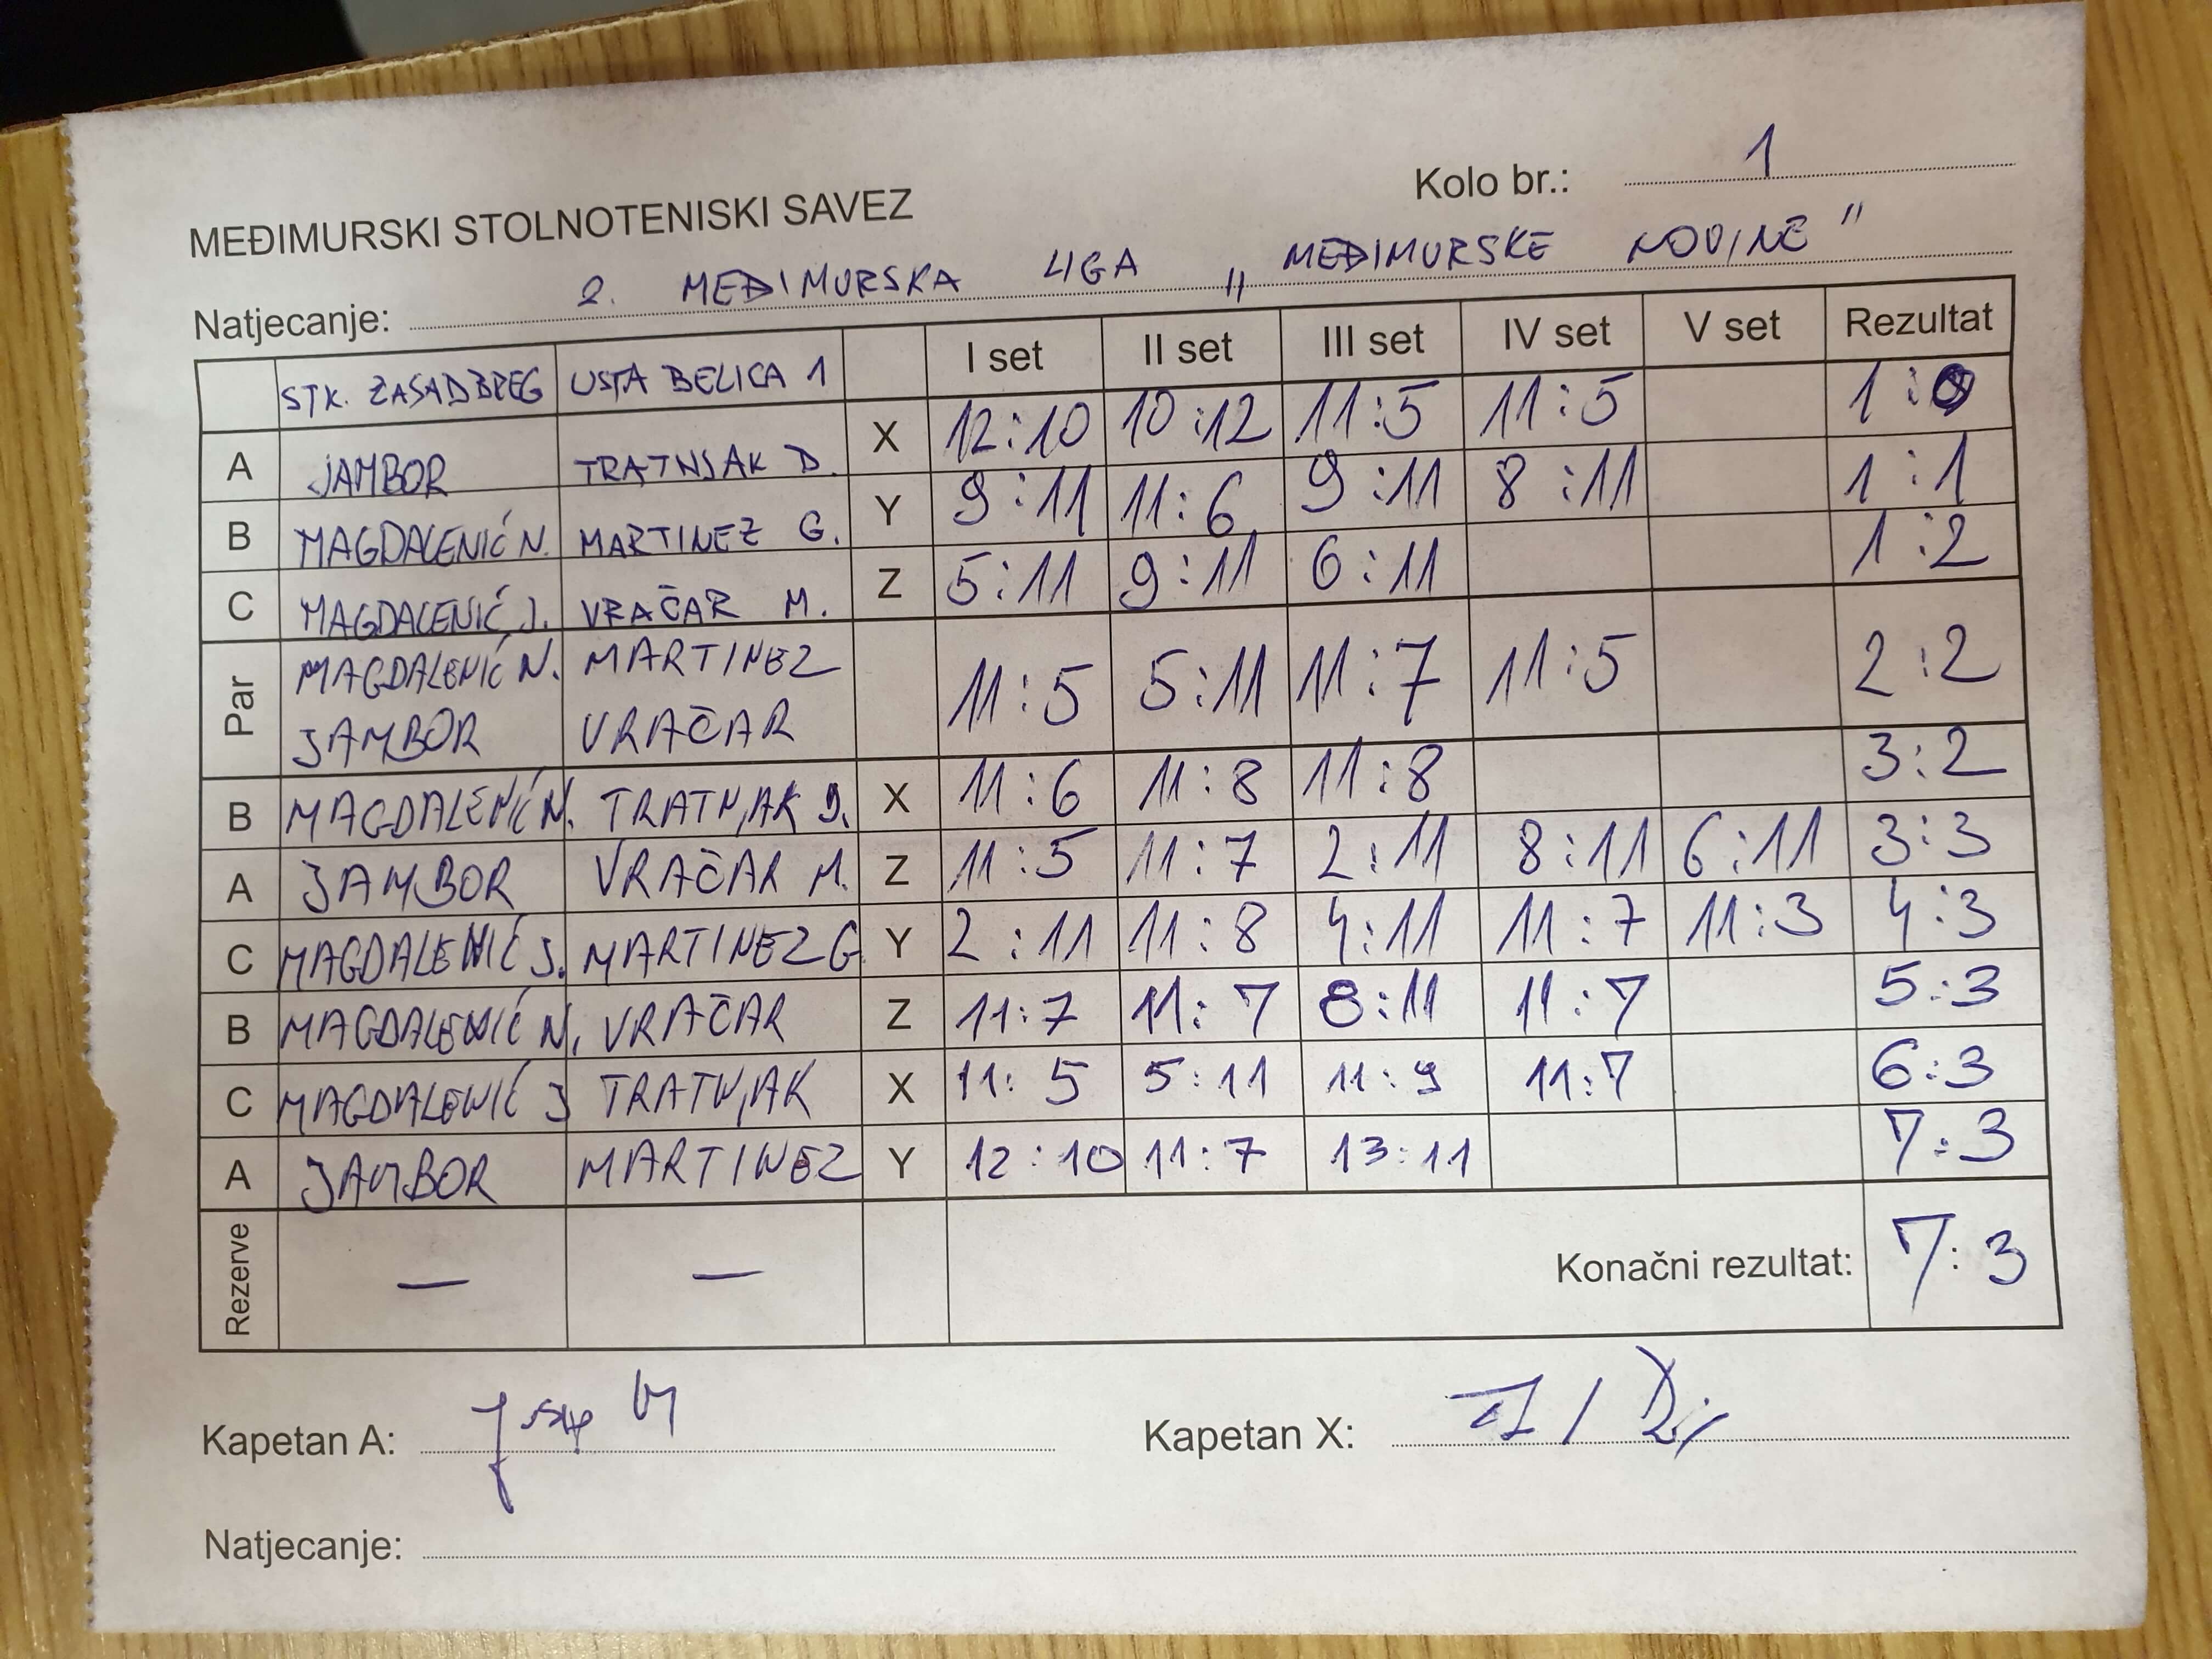 Kolo br.: 1
MEĐIMURSKI STOLNOTENISKI SAVEZ
Natjecanje: 2. MEĐIMURSKA LIGA „MEĐIMURSKE NOVINE"
STK. ZASADBREG USTA BELICA 1 I set II set III set IV set V set Rezultat
A JAMBOR TRATNJAK D. X 12:10 10:12 11:5 11:5 1:0
B MAGDALENIĆ N. MARTINEZ G. Y 9:11 11:6 9:11 8:11 1:1
C MAGDALENIĆ J. VRAČAR M. Z 5:11 9:11 6:11 1:2
Par MAGDALENIĆ N. MARTINEZ
JAMBOR VRAČAR 11:5 5:11 11:7 11:5 2:2
B MAGDALENIĆ N. TRATNJAK D. X 11:6 11:8 11:8 3:2
A JAMBOR VRAČAR M. Z 11:5 11:7 2:11 8:11 6:11 3:3
C MAGDALENIĆ J. MARTINEZ G Y 2:11 11:8 4:11 11:7 11:3 4:3
B MAGDALENIĆ N. VRAČAR Z 11:7 11:7 8:11 11:7 5:3
C MAGDALENIĆ J TRATNJAK X 11:5 5:11 11:9 11:7 6:3
A JAMBOR MARTINEZ Y 12:10 11:7 13:11 7:3
Rezerve — — Konačni rezultat: 7:3
Kapetan A: Kapetan X:
Natjecanje: